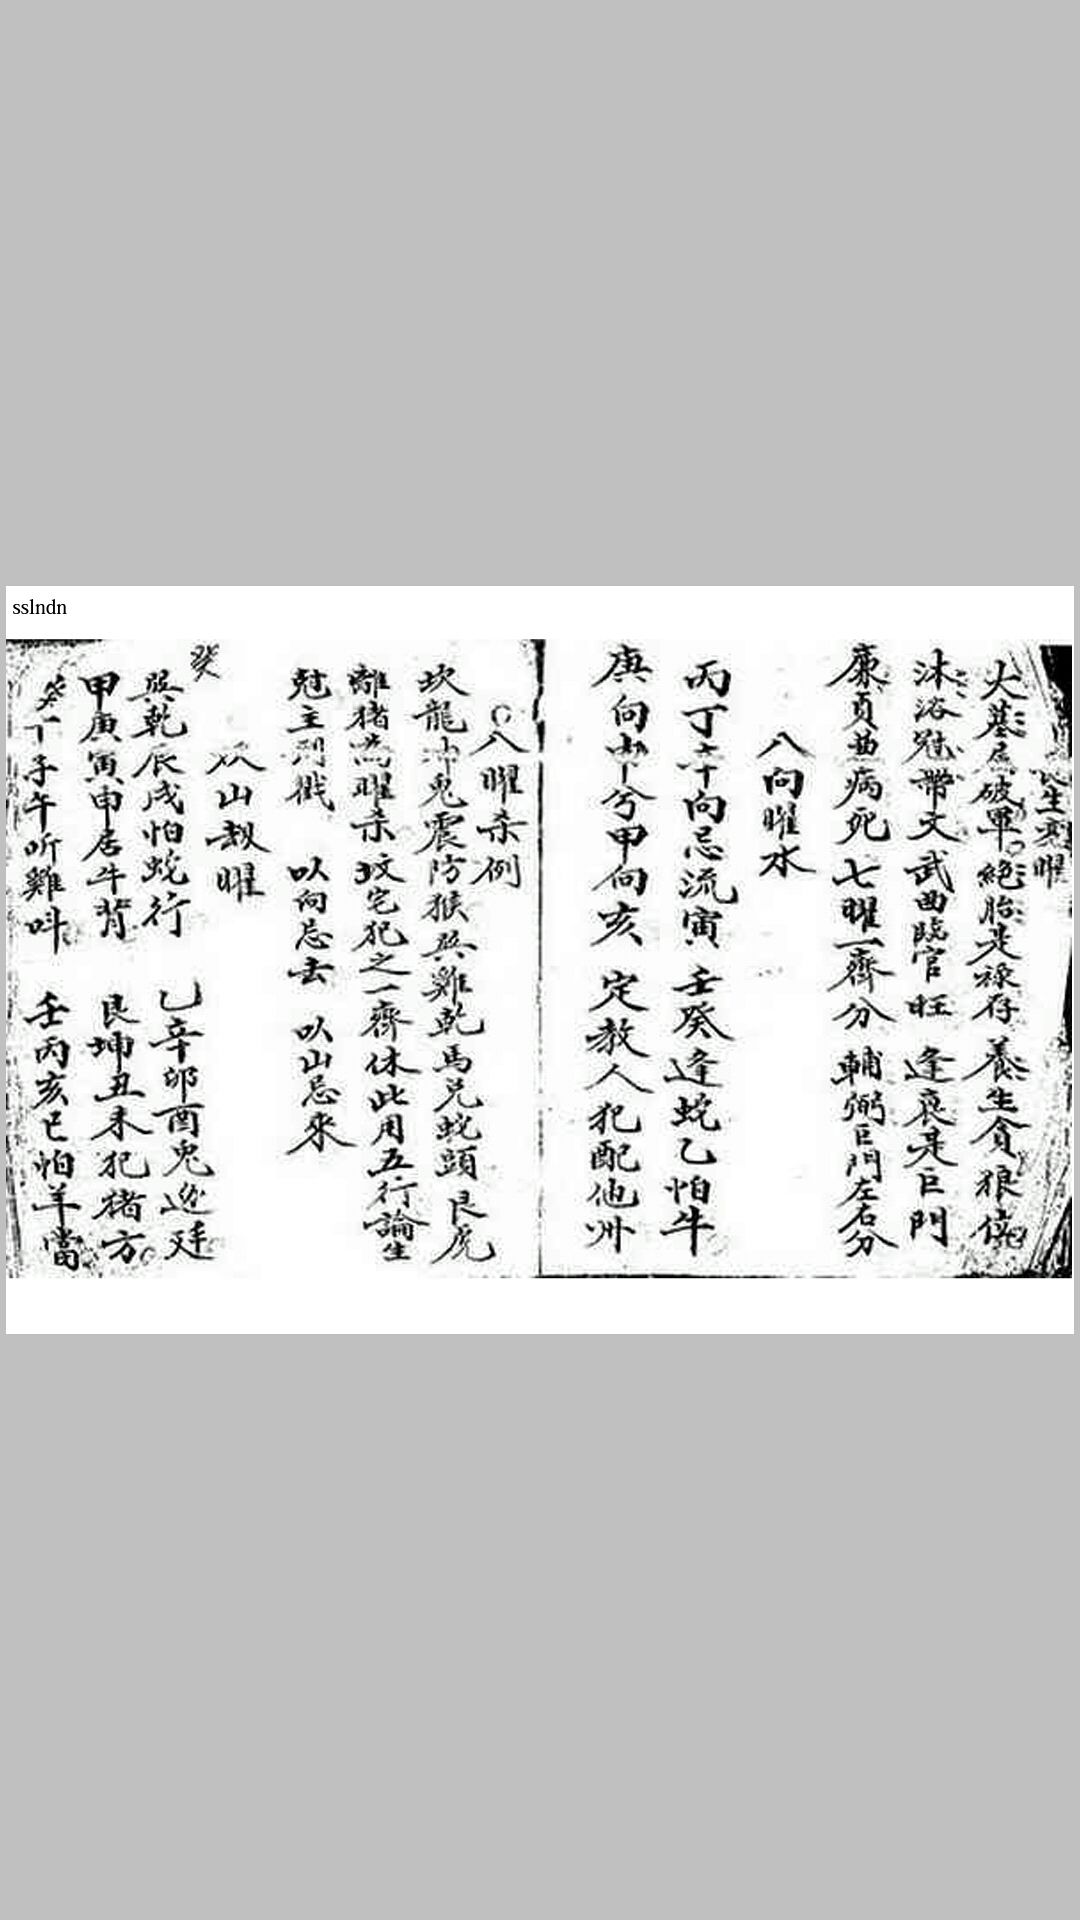 sslndn
長生剋曜
火墓居破軍絕胎是祿存 養生貪狼位
沐浴冠帶文武曲臨官旺 逢衰是巨門
廉貞並病死七曜一齊分 輔弼巨門左右分
八向曜水
丙丁辛向忌流寅 壬癸逢蛇乙怕牛
庚向申兮甲向亥 定教人犯配他州
八曜杀例
坎龍坤兎震防猴巽雞乾馬兌蛇頭艮虎
離猪為曜杀坟宅犯之一齊休此用五行論生
尅主刑戮 以向忌去 以山忌來
山刼曜
癸
巽乾辰戌怕蛇行 乙辛卯酉兎逃廷
甲庚寅申居牛背 艮坤丑未犯猪方
癸丁子午听雞呌 壬丙亥巳怕羊當